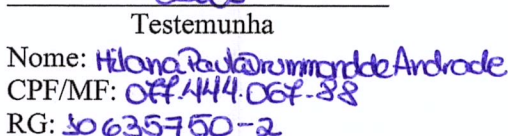 Testemunha
Nome: Hilana Paula Drummond de Andrade
CPF/MF: 077.444.067-88
RG: 10635750-2